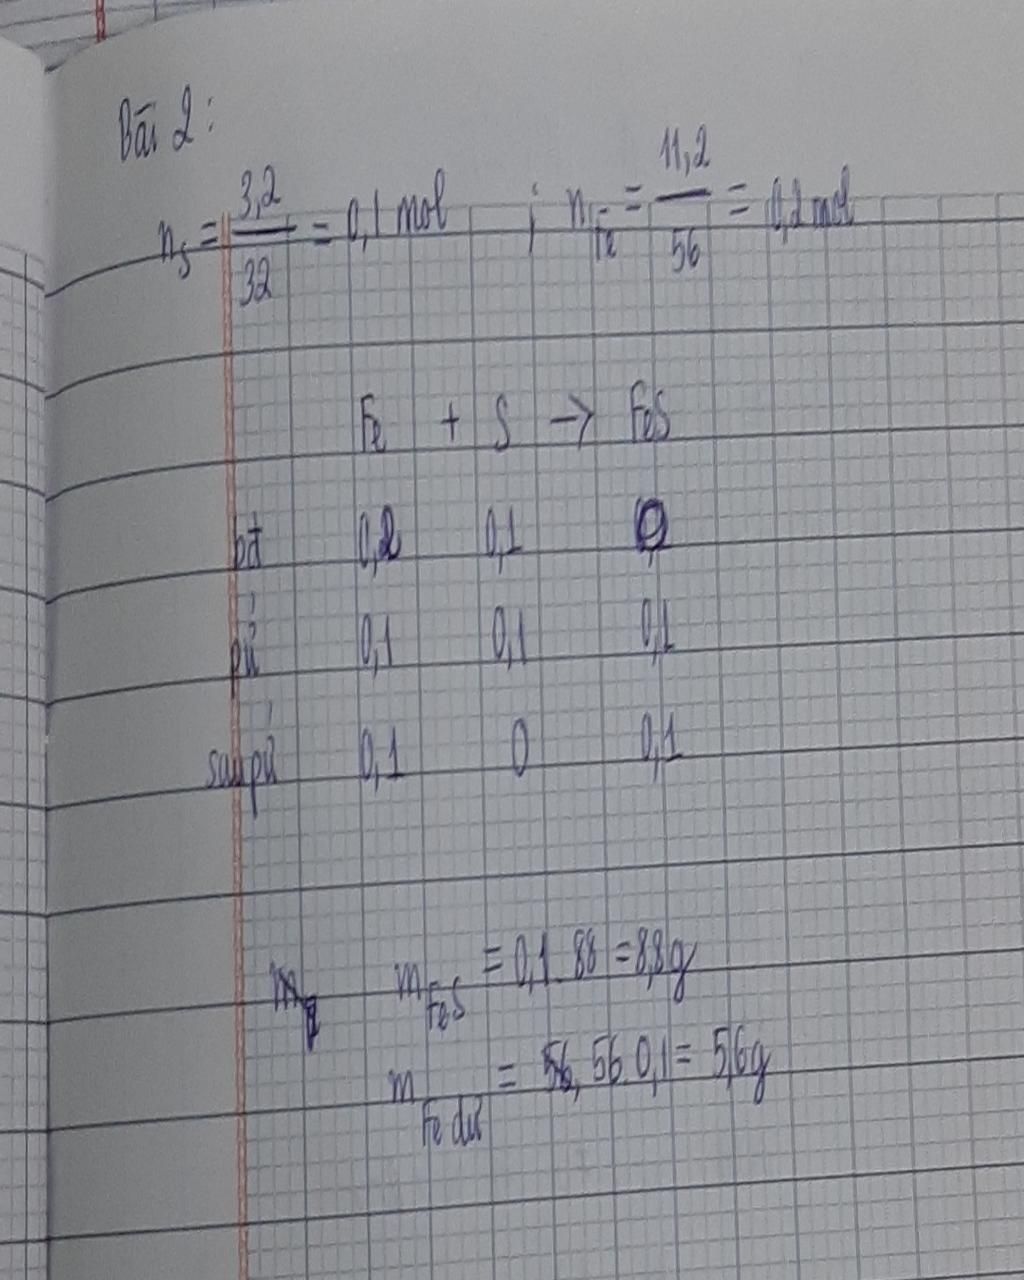 Bài 2:
nS = 3,2/32 = 0,1 mol ; nFe = 11,2/56 = 0,2 mol
Fe + S → FeS
bđ 0,2 0,1 0
pứ 0,1 0,1 0,1
sau pứ 0,1 0 0,1
mFeS = 0,1 . 88 = 8,8g
mFe dư = 56 . 0,1 = 5,6g